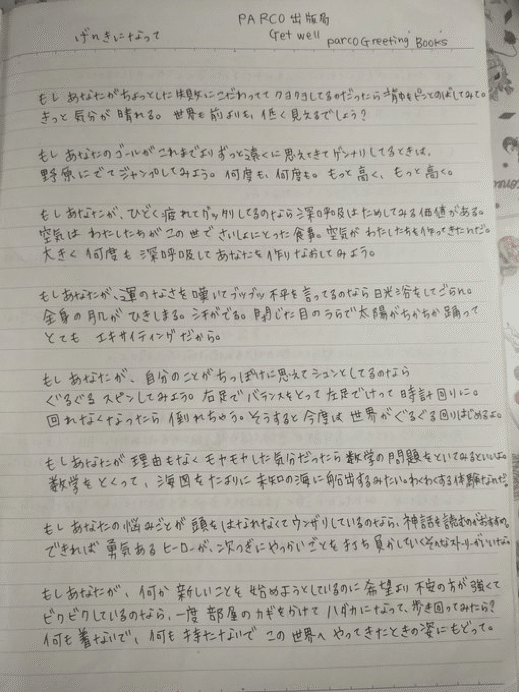 げんきになって
PARCO出版局
Get well parcoGreeting Books
もし あなたがちょっとした失敗にこだわってて クヨクヨしてるのだったら背中をピンとのばしてみて。
きっと 気分が 晴れる。世界も前よりも、低く見えるでしょう？
もし あなたのゴールがこれまでより ずっと遠くに思えてきてゲンナリしてるときは、
野原にでてジャンプしてみよう。何度も、何度も。もっと高く、もっと高く。
もしあなたが、ひどく疲れてグッタリしてるのなら深呼吸はためしてみる価値がある。
空気は わたしたちが この世で さいしょにとった食事。空気が わたしたちを作ってきたんだ。
大きく 何度も 深呼吸して あなたを 作りなおしてみよう。
もしあなたが、運のなさを嘆いてブツブツ不平を言ってるのなら日光浴をしてごらん。
全身の肌が ひきしまる。シャがでる。閉じた目のうらで太陽がちかちか踊って
とても エキサイティングだから。
もし あなたが、自分のことがちっぽけに思えてシュンとしてるのなら
ぐるぐる スピンしてみよう。右足でバランスをとって左足でけって時計回りに。
回れなくなったら 倒れちゃう。そうすると 今度は 世界が ぐるぐる回りはじめるよ。
もし あなたが 理由もなく モヤモヤした気分だったら数学の問題をといてみるといいよ。
数学をとくって、海図をたよりに 未知の海に船出するみたいなわくわくする体験なんだ。
もし あなたの悩みごとが 頭をはなれなくてウンザリしているのなら、神話を読むのがおすすめ。
できれば 勇気ある ヒーローが、次つぎにやっかいごとを打ち負かしていくそんなストーリーがいいけな
もし あなたが、何か 新しいことを 始めようとしているのに 希望より 不安の方が強くて
ビクビクしているのなら、一度 部屋のカギをかけて ハダカになって、歩き回ってみたら？
何も 着ないで、何も 持たないで この世界へ やってきたときの姿にもどって。